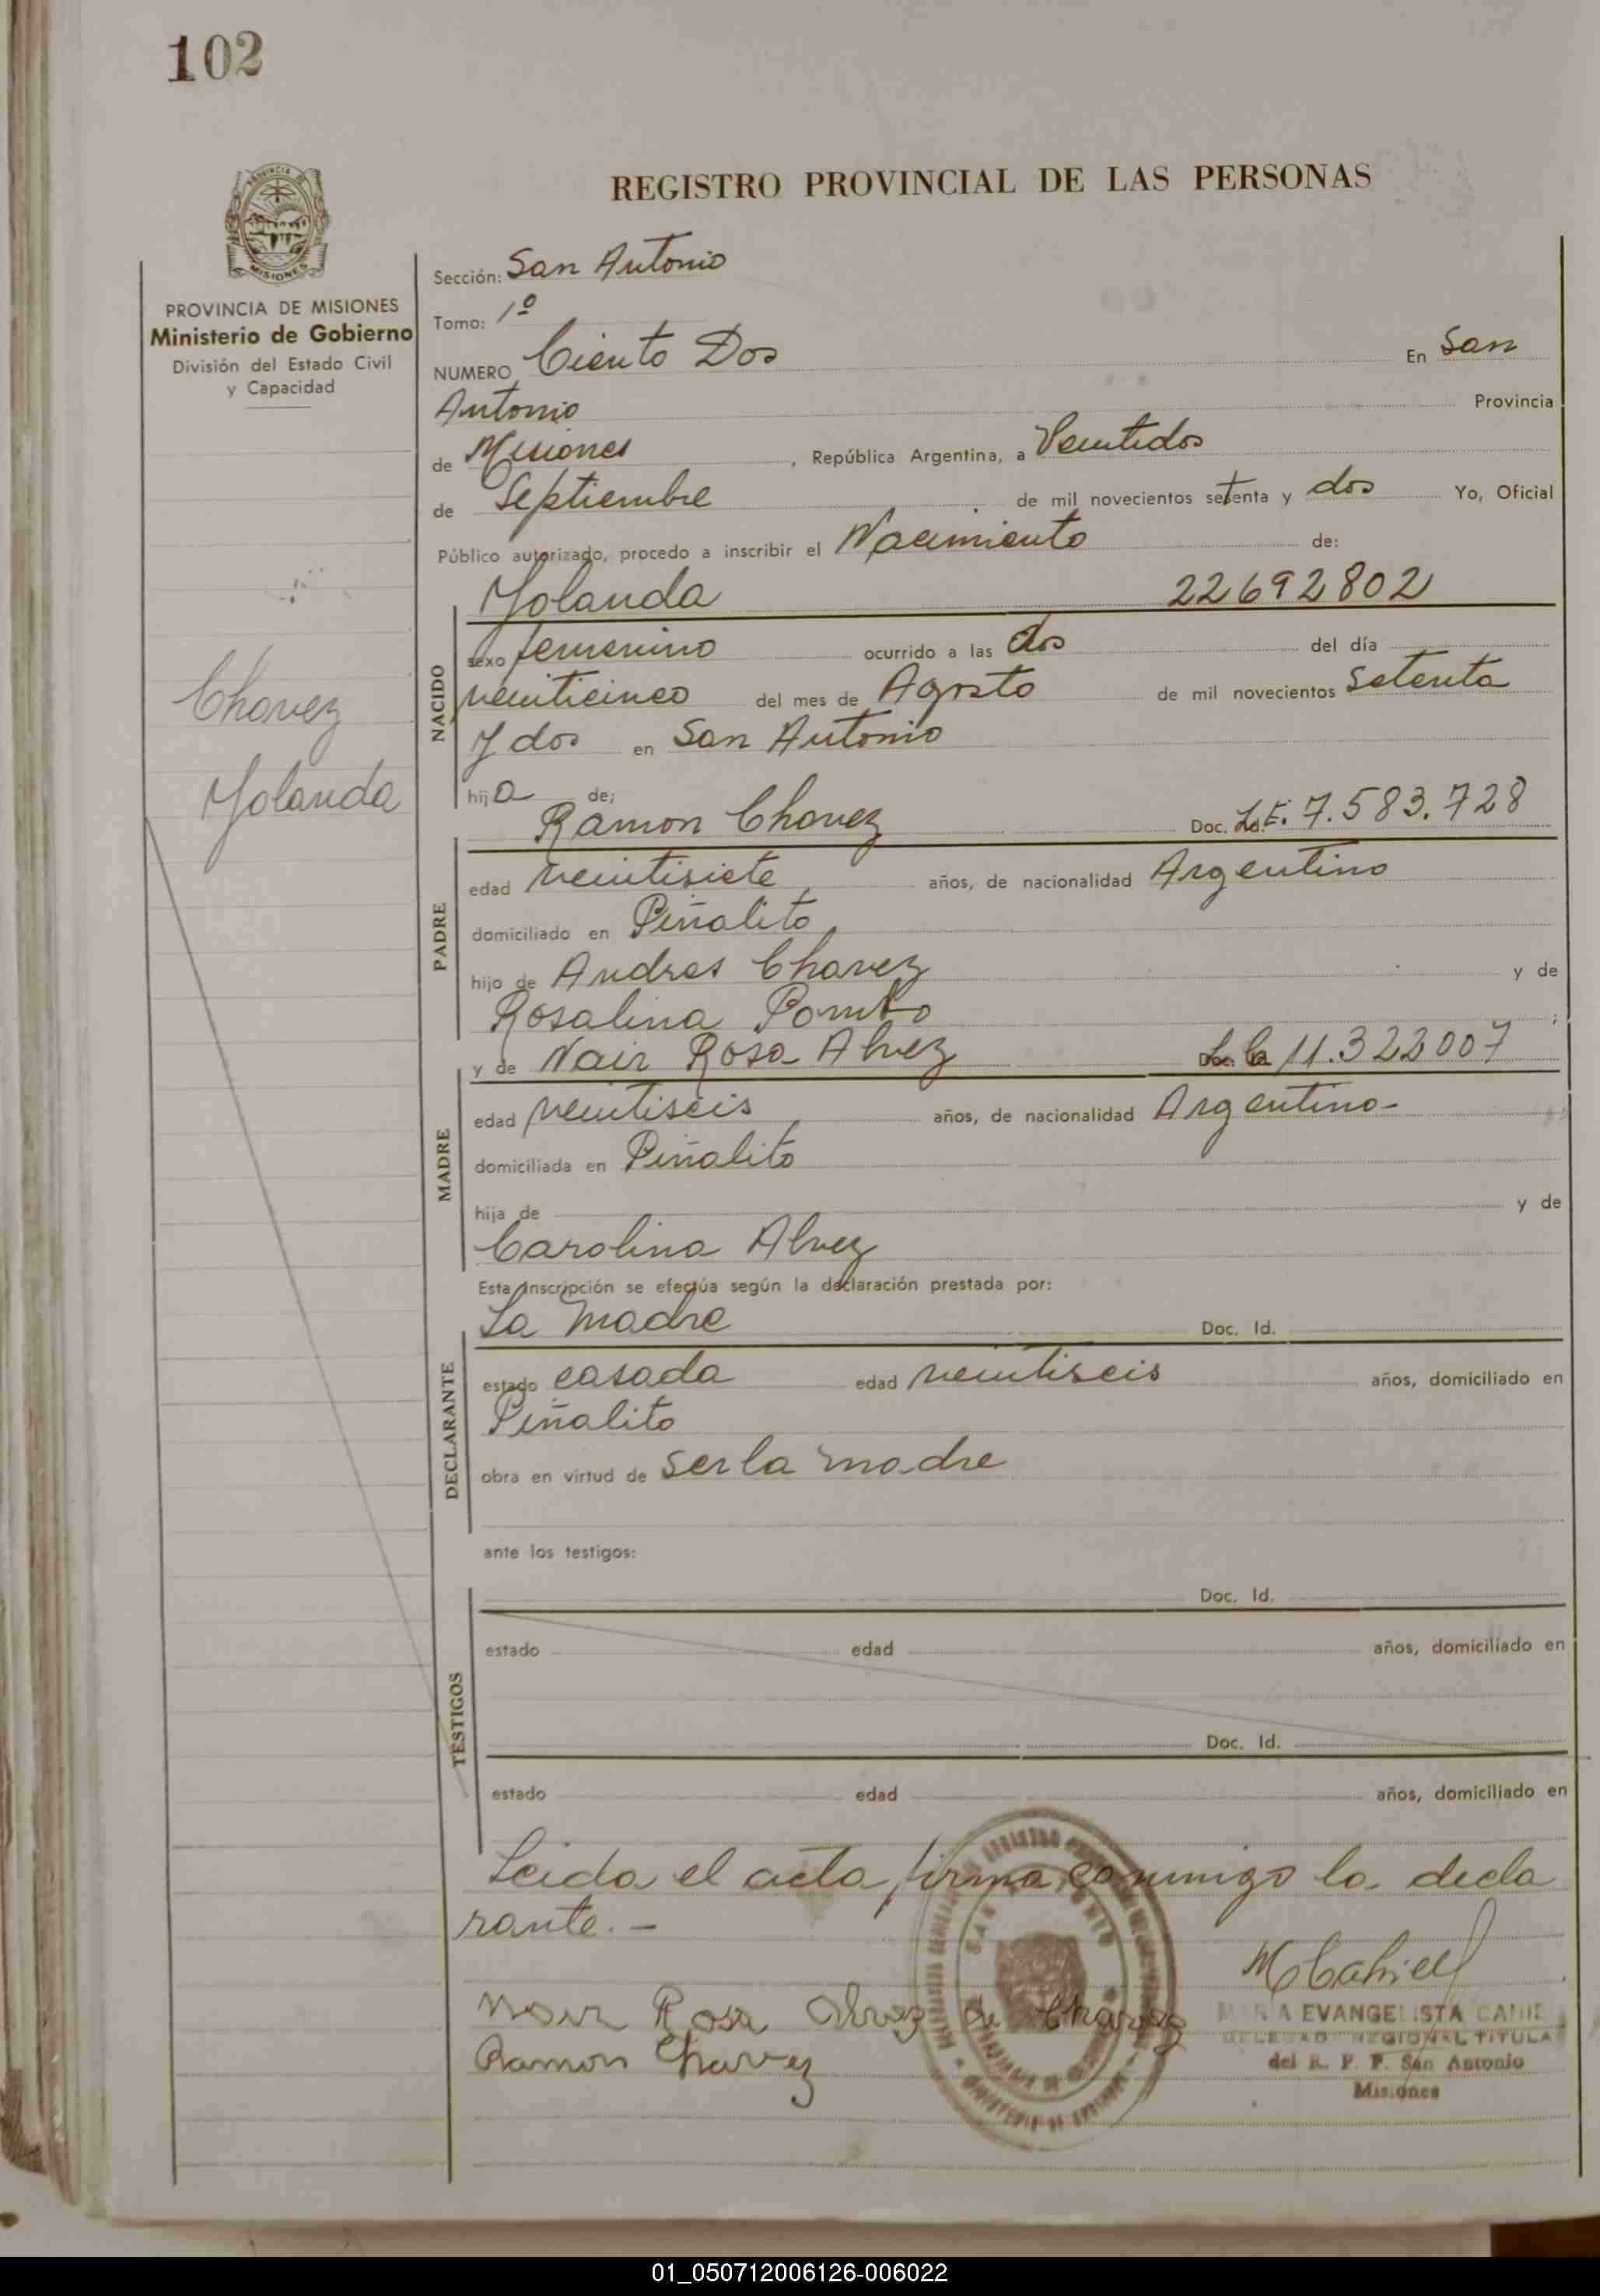 102
REGISTRO PROVINCIAL DE LAS PERSONAS
PROVINCIA DE MISIONES
Ministerio de Gobierno
División del Estado Civil
y Capacidad
Chavez
Yolanda
Sección: San Antonio
Tomo: 1º
NUMERO Ciento Dos En San
Antonio Provincia
de Misiones, República Argentina, a Veintidos
de Septiembre de mil novecientos setenta y dos Yo, Oficial
Público autorizado, procedo a inscribir el Nacimiento de:
Yolanda 22692802
NACIDO
sexo femenino ocurrido a las dos del día
veinticinco del mes de Agosto de mil novecientos setenta
y dos en San Antonio
hija de;
Ramon Chavez Doc. L.E. 7.583.728
PADRE
edad veintisiete años, de nacionalidad Argentino
domiciliado en Piñalito
hijo de Andres Chavez y de
Rosalina ;
y de Nair Rosa Alvez 11.322007
MADRE
edad veintiseis años, de nacionalidad Argentina-
domiciliada en Piñalito
hija de y de
Carolina Alvez
Esta inscripción se efectúa según la declaración prestada por:
La madre Doc. Id.
DECLARANTE
estado casada edad veintiseis años, domiciliado en
Piñalito
obra en virtud de ser la madre
ante los testigos:
Doc. Id.
TESTIGOS
estado edad años, domiciliado en
Doc. Id.
estado edad años, domiciliado en
Leida el acta, firma conmigo la decla
rante.-
Nair Rosa Alvez de Chavez
Ramon Chavez
EVANGELISTA
REGIONAL TITULA
del R. P. P. San Antonio
Misiones
01_050712006126-006022